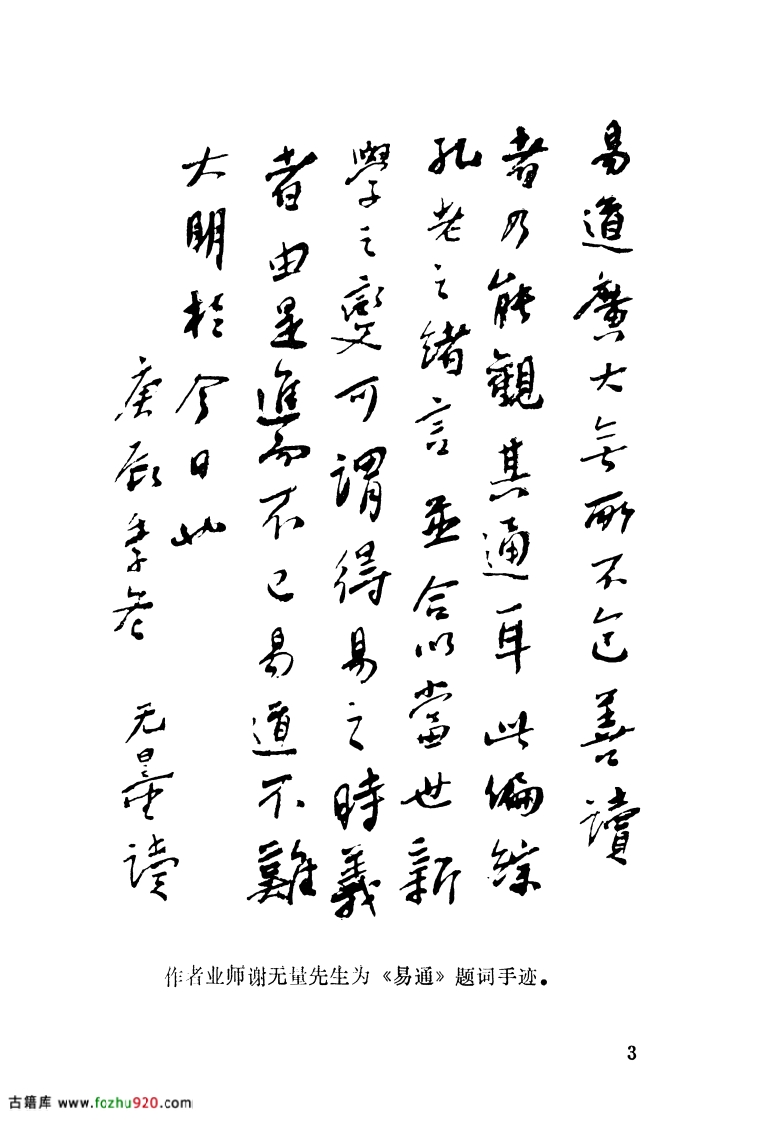 易道廣大無所不包善讀
者乃能觀其通耳此偏綜
孔老之绪言並合以當世新
學之變可謂得易之時義
者由是進而不已易道不難
大明於今日也
庚辰季冬 无量读
作者业师谢无量先生为《易通》题词手迹。
3
古籍库 www.fozhu920.com